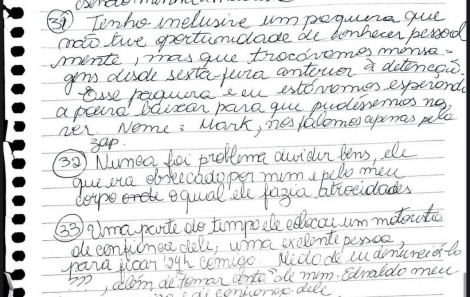 31) Tenho inclusive um paquera que
não tive oportunidade de conhecer pessoal
mente, mas que trocávamos mensa-
gens desde sexta-feira anterior à detenção.
Esse paquera e eu estávamos esperando
a poeira baixar para que pudéssemos nos
ver. Nome: Mark, nos falamos apenas pelo
zap.
32) Nunca foi problema dividir bens, ele
que era obsecado por mim e pelo meu
corpo onde o qual ele fazia atrocidades
33) Uma parte do tempo ele colocou um motorista
de confiança dele, uma exelente pessoa,
para ficar 24h comigo. Medo de eu denunciá-lo
???, além de tomar conta de mim. Ednaldo meu
confiança dele